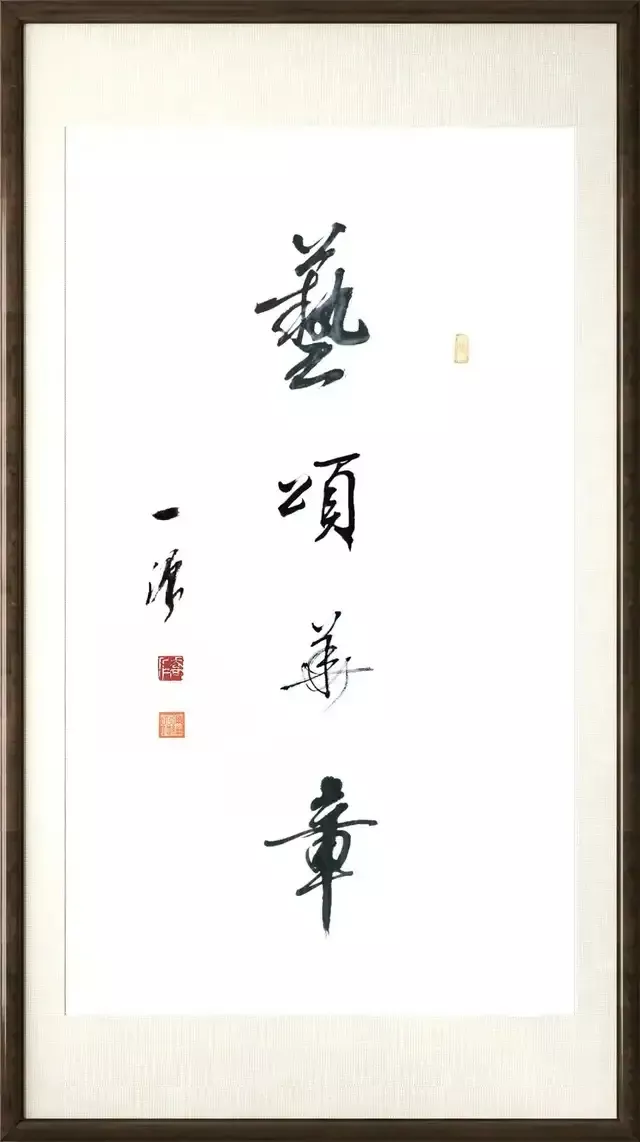 藝頌華章
一濤